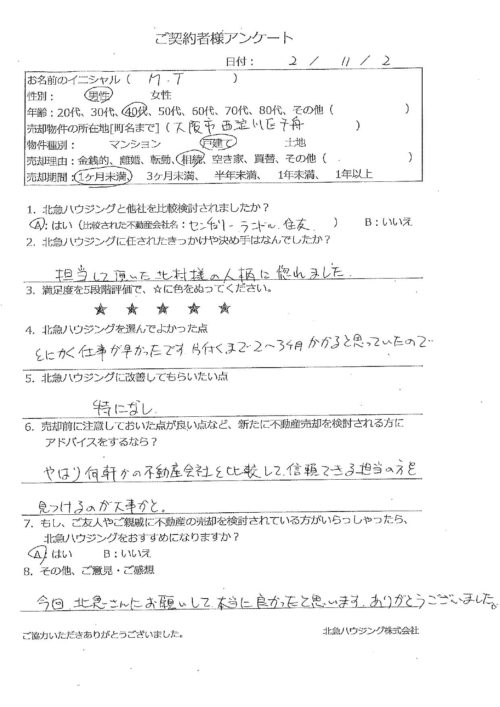 ご契約者様アンケート
日付： 2 / 11 / 2
お名前のイニシャル（ M.T ）
性別： 男性 女性
年齢：20代、30代、40代、50代、60代、70代、80代、その他（ ）
売却物件の所在地[町名まで]（大阪市西淀川区千舟
物件種別： マンション 戸建て 土地
売却理由：金銭的、離婚、転勤、相続、空き家、買替、その他（ ）
売却期間：1ヶ月未満、 3ヶ月未満、 半年未満、 1年未満、 1年以上
1. 北急ハウジングと他社を比較検討されましたか？
A：はい（比較された不動産会社名：センチュリー ランドル 住友 ） B：いいえ
2. 北急ハウジングに任されたきっかけや決め手はなんでしたか？
担当して頂いた北村様の人柄に惚れました。
3. 満足度を5段階評価で、☆に色をぬってください。
★ ★ ★ ★ ★
4. 北急ハウジングを選んでよかった点
とにかく仕事が早かったです 片付くまで2～3ヶ月かかると思っていたので
5. 北急ハウジングに改善してもらいたい点
特になし
6. 売却前に注意しておいた点が良い点など、新たに不動産売却を検討される方に
アドバイスをするなら？
やはり何軒かの不動産会社を比較して、信頼できる担当の方を
見つけるのが大事かと。
7. もし、ご友人やご親戚に不動産の売却を検討されている方がいらっしゃったら、
北急ハウジングをおすすめになりますか？
A：はい B：いいえ
8. その他、ご意見・ご感想
今回、北急さんにお願いして本当に良かったと思います。ありがとうございました。
ご協力いただきありがとうございました。
北急ハウジング株式会社